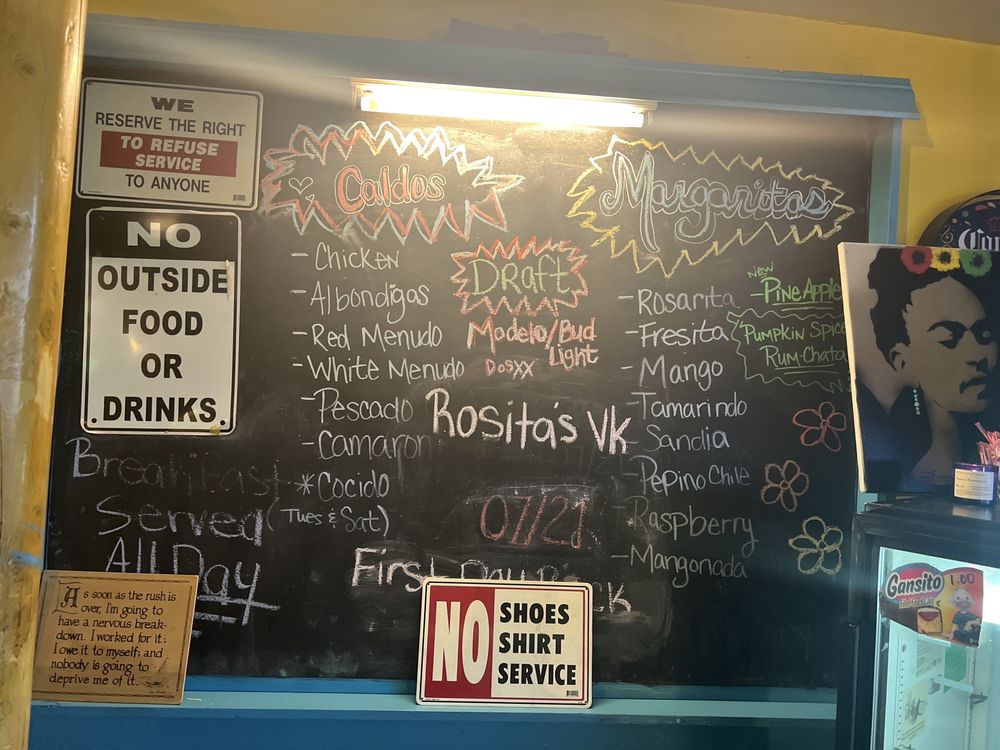 WE
RESERVE THE RIGHT
TO REFUSE
SERVICE
TO ANYONE
NO
OUTSIDE
FOOD
OR
DRINKS
Breakfast
Served
All Day
As soon as the rush is
over, I'm going to
have a nervous break-
down. I worked for it;
I owe it to myself; and
nobody is going to
deprive me of it.
Caldos
- Chicken
- Albondigas
- Red Menudo
- White Menudo
- Pescado
- Camaron
* Cocido
(Tues & Sat)
Draft
Modelo/Bud
Light
DosXX
Rosita's Vk
07/21
First Day
NO
SHOES
SHIRT
SERVICE
Margaritas
- Rosarita
- Fresita
- Mango
- Tamarindo
- Sandia
- Pepino Chile
- Raspberry
- Mangonada
new
- PineApple
Pumpkin Spice
Rum-Chata
Gansito 1.00